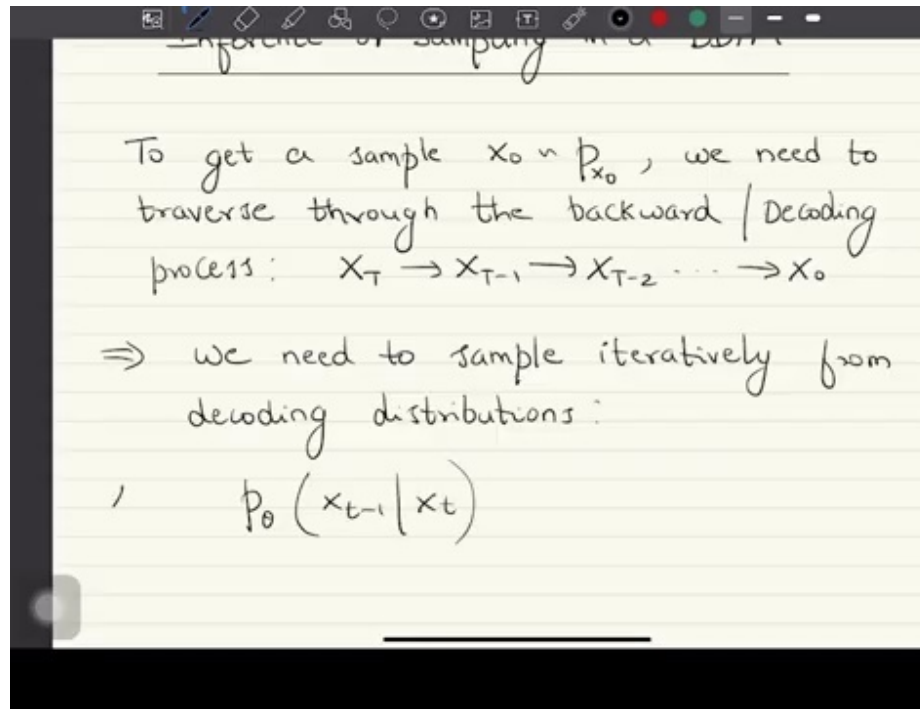 Inference or sampling in a DDPM
To get a sample x₀ ~ p_{x₀}, we need to
traverse through the backward / Decoding
process: x_T → x_{T-1} → x_{T-2} ... → x₀
⇒ we need to sample iteratively from
decoding distributions:
p_θ (x_{t-1} | x_t)